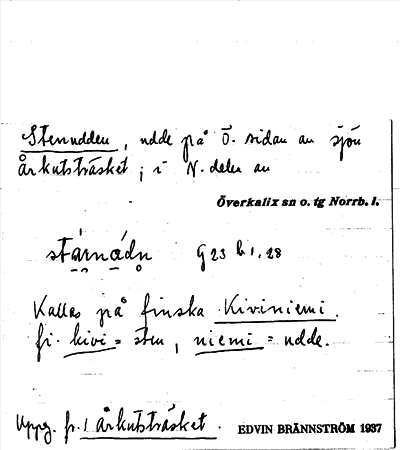 Stenudden, udde på Ö. sidan av sjön
Årkutsträsket; i N. delen av
Överkalix sn o. tg Norrb. l.
stárnádn G 23 b 1.28
Kallas på finska Kiviniemi.
fi. kivi = sten, niemi = udde.
Uppg. fr. Årkutsträsket.
EDVIN BRÄNNSTRÖM 1937